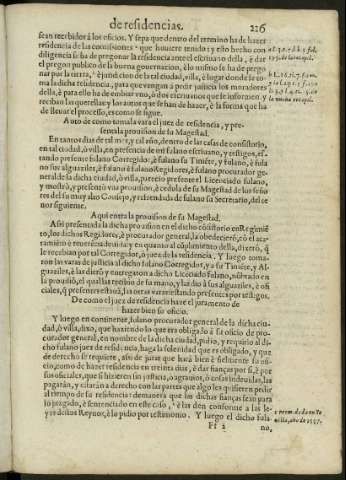 de residencias. 226
sean recebidos a los oficios. Y sepa que dentro del termino ha de hazer
residencia de las comissiones que huuiere tenido: y esto hecho con
diligencia se ha de pregonar la residencia ante el escriuano della, è dar
el pregon publico de la buena gouernacion, lo mismo se ha de pregonar
nar por la tierra, è jurisdicion de la tal ciudad, villa, è lugar donde
ma la dicha residencia, para que vengan à pedir justicia los moradores
della, è para ello ha de embiar vno, ò dos escriuanos que se informen y
reciban las querellas y los autos que se han de hazer, è la forma que ha
de lleuar el processo, es como se sigue.
Auto de como tomala vara el juez de residencia, y pre-
senta la prouision de su Magestad.
En tantos dias de tal mes, y tal año, dentro de las casas de consistorio,
en tal ciudad, ò villa, en presencia de mi fulano escriuano, y testigos, es-
tando presente fulano Corregidor, è fulano su Tiniẽte, y fulano, è fula
no sus alguaziles, è fulano è fulano Regidores, è fulano procurador ge-
neral de la dicha ciudad, ò villa, parecio presente el Licenciado fulano,
y mostrò, y presentò vna prouision, è cedula de su Magestad de los seño
res del su muy alto Consejo, y refrendada de fulano su Secretario, del te
nor siguiente.
Aqui entra la prouision de su Magestad.
Assi presentada la dicha prouision en el dicho cõsistorio en Regimiẽ
to, los dichos Regidores, è procurador general, la obedecierõ, cõ el aca-
tamiẽto è reuerẽcia deuida: y en quanto al cõplimiento della, dixerõ, q̃
le recebian por tal Corregidor, ò juez de la residencia. Y luego toma-
ron las varas de justicia al dicho fulano Corregidor, y a su Tiniẽte, y Al-
guaziles, è las dierõ y entregaron a dicho Licenciado fulano, nõbrado en
la prouisiõ, el qual las recibio de su mano, y las dio à sus alguaziles, è ofi
ciales, q̃ presentes estauã, las otras varas: estando presentes por testigos.
De como el juez de residencia haze el juramento de
hazer bien su oficio.
Y luego en continente, fulano procurador general de la dicha ciu-
dad, ò villa, dixo, que haziendo lo que era obligado à su oficio de pro-
curador general, en nombre de la dicha ciudad, pidio, y requirio al di-
cho fulano juez de residencia, haga la solenidad que es obligado, y que
de derecho se requiere, assi de jurar que harà bien è fielmente su ofi-
cio, como de hazer residencia en treinta dias, è dar fianças por si, è por
sus oficiales, que si hizieren sin justicia, ò agrauios, ò cosas indeuidas, las
pagaràn, y estaràn a derecho con las partes que algo les quisieren pedir
al tiempo de su residencia: de manera que las dichas fianças sean para
lo juzgado, è sentenciado en este caso, è las den conforme a las le-
yes destos Reynos, è lo pidio por testimonio. Y luego el dicho fula
Ff 2 no,